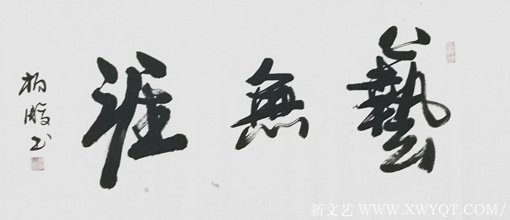 藝無涯
新文艺 WWW.XWYQT.COM